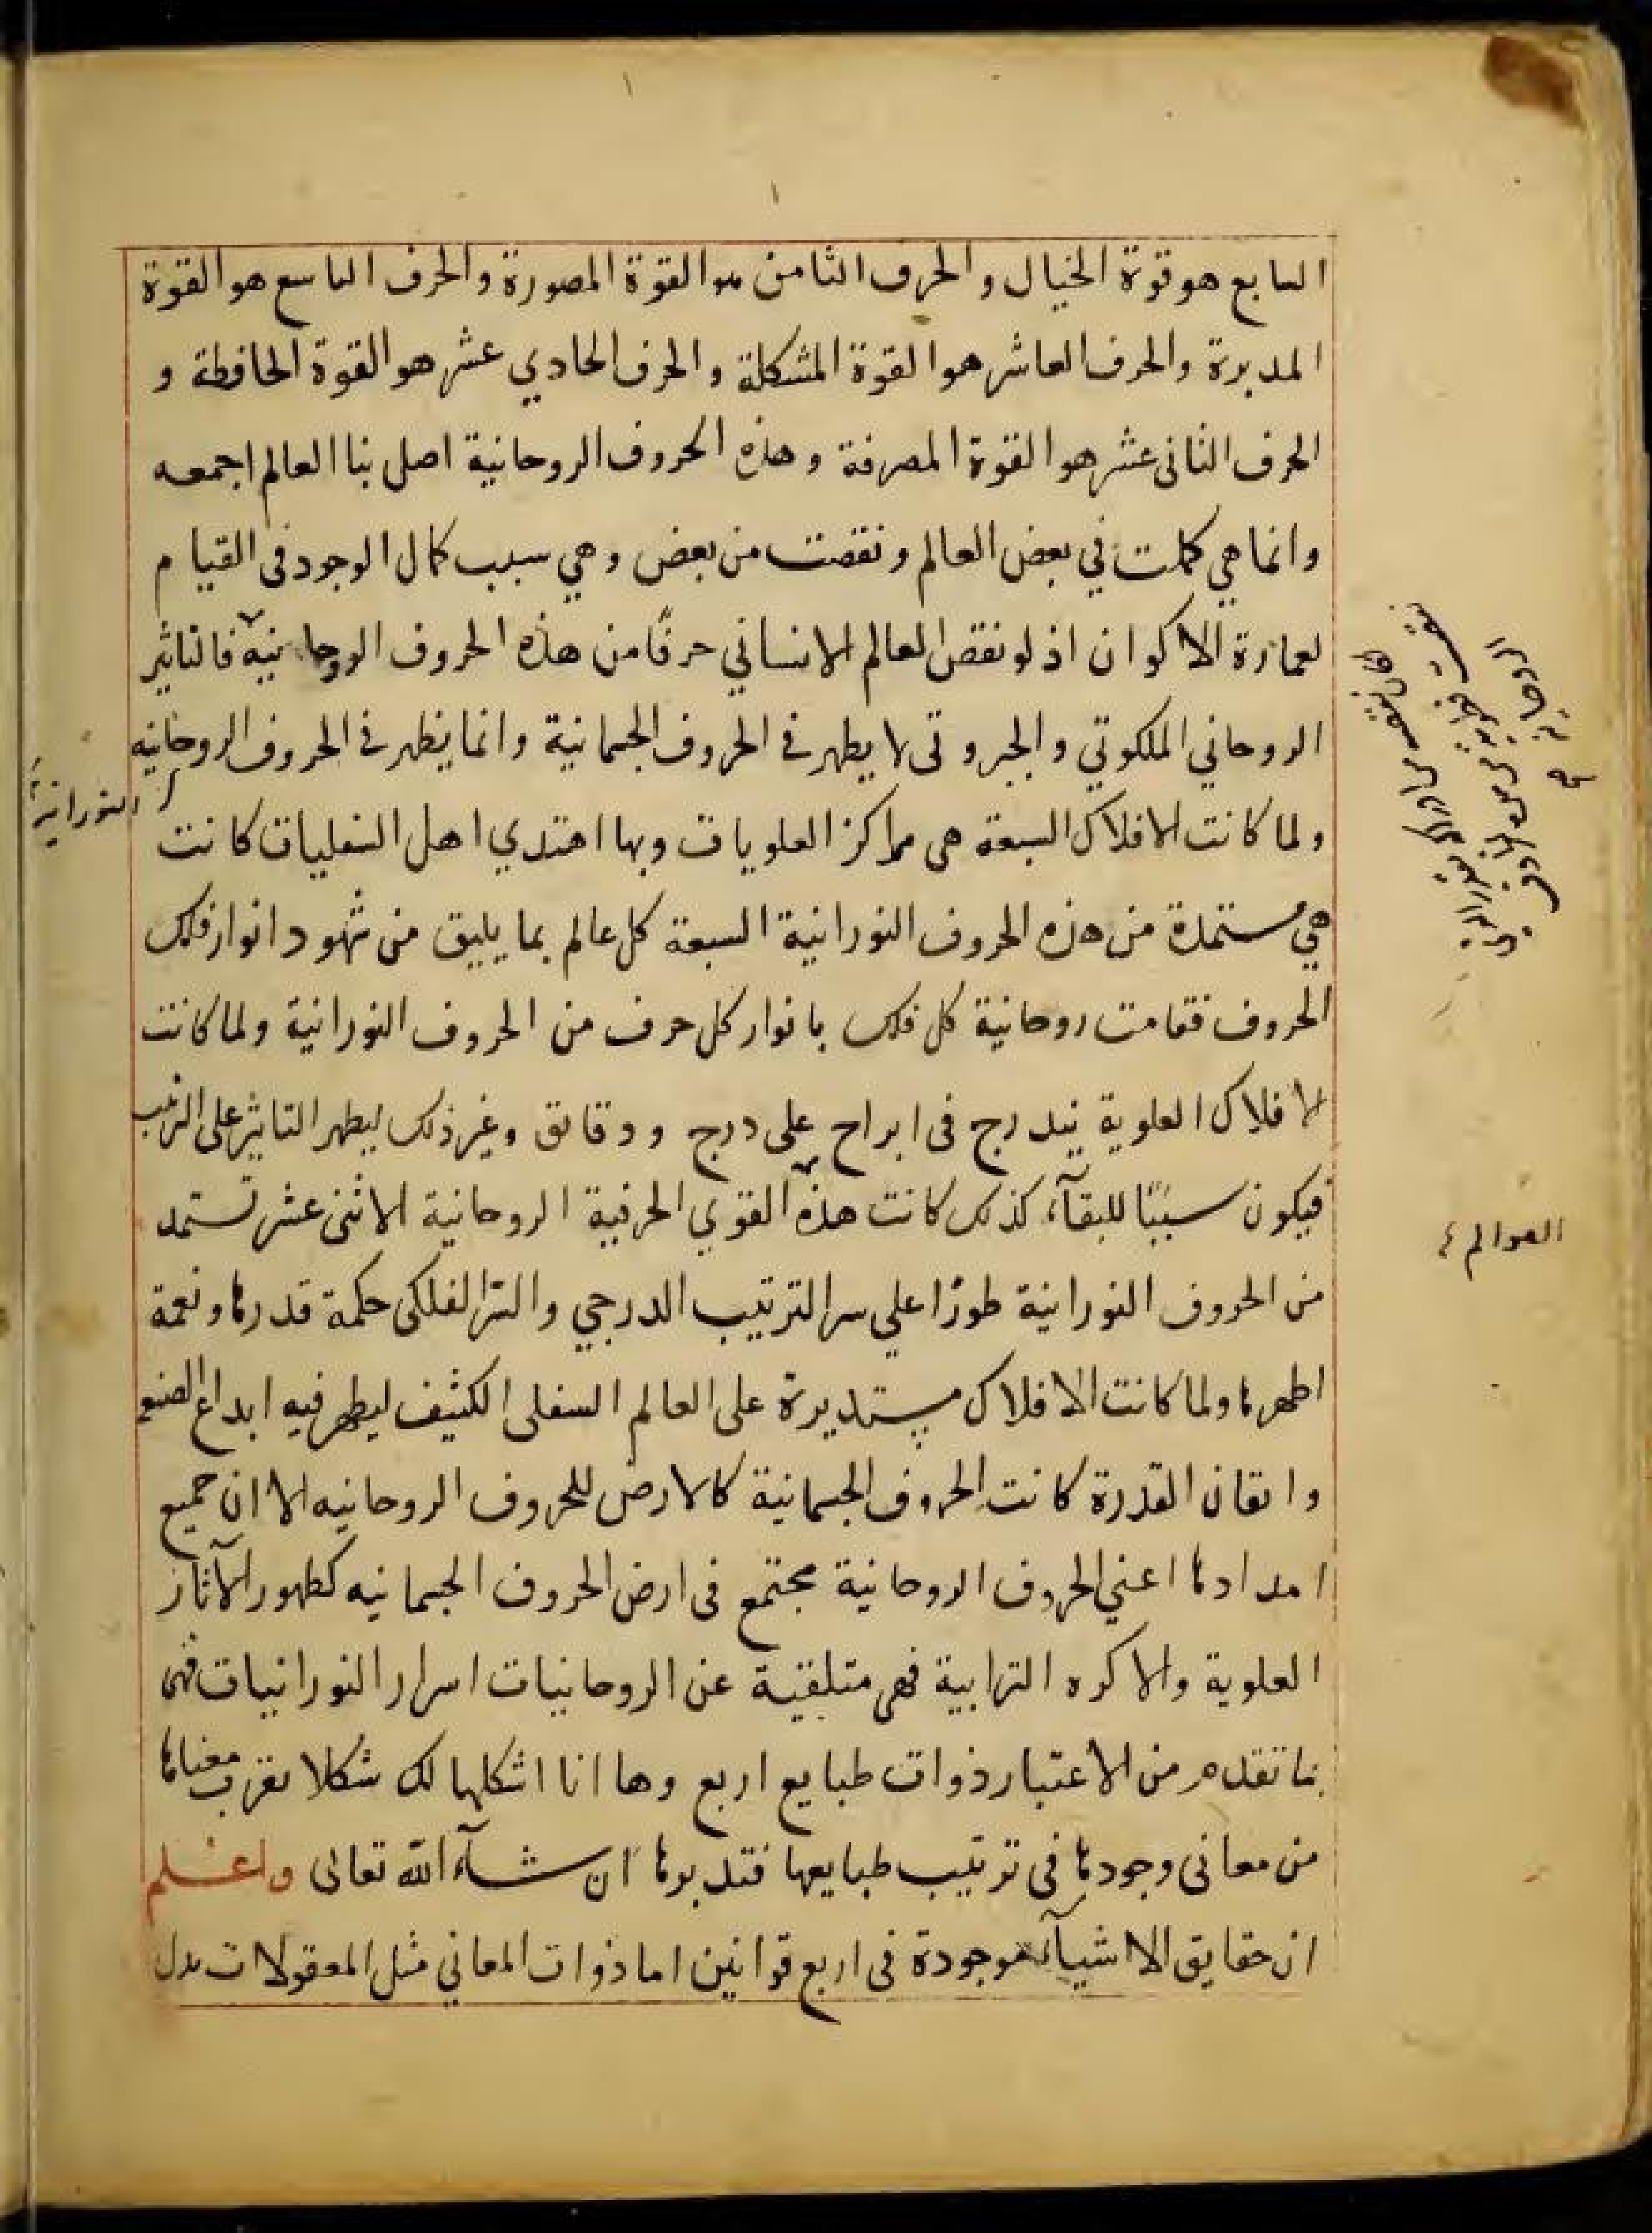 السابع هو قوة الخيال والحرف الثامن هو القوة المصورة والحرف التاسع هو القوة
المدبرة والحرف العاشر هو القوة المشكلة والحرف الحادي عشر هو القوة الحافظة و
الحرف الثانى عشر هو القوة المصرفة وهذه الحروف الروحانية اصل بنا العالم اجمعه
وانما هي كملت في بعض العالم ونقصت من بعض وهي سبب كمال الوجود فى القيام
لعمارة الاكوان اذ لو نقص العالم الانساني حرفًا من هذه الحروف الروحانية فالتاثير
الروحاني الملكوتي والجبروتى لا يظهر فى الحروف الجسمانية وانما يظهر فى الحروف الروحانيه
النورانية
ولما كانت الافلاك السبعة هى مراكز العلويات وبها اهتدي اهل السفليات كانت
هي مستمدة من هذه الحروف النورانية السبعة كل عالم بما يليق من شهود انوار فلك
الحروف فقامت روحانية كل فلك بانوار كل حرف من الحروف النورانية ولما كانت
الافلاك العلوية يندرج فى ابراج على درج ودقائق وغير ذلك ليظهر التاثير على الترتيب
فيكون سببًا للبقآء كذلك كانت هذه القوي الحرفية الروحانية الاثنى عشر تستمد
العوالم
من الحروف النورانية طورًا علي سر الترتيب الدرجي والسر الفلكى حكمة قدرها ونعمة
اظهرها ولما كانت الافلاك مستديرة على العالم السفلى الكثيف ليظهر فيه ابداع الصنع
واتقان القدرة كانت الحروف الجسمانية كالارض للحروف الروحانيه الا ان جميع
امدادها اعني الحروف الروحانية مجتمع فى ارض الحروف الجسمانيه كظهور الآثار
العلوية والاكره الترابية فهى متلقية عن الروحانيات اسرار النورانيات فهى
بما تقدم من الاعتبار ذوات طبايع اربع وها انا اشكلها لك شكلا يقرب معناها
من معانى وجودها فى ترتيب طبايعها فتدبرها ان شآء الله تعالى واعلم
ان حقايق الاشيآء موجودة فى اربع قوانين اما ذوات المعاني مثل المعقولات بدل